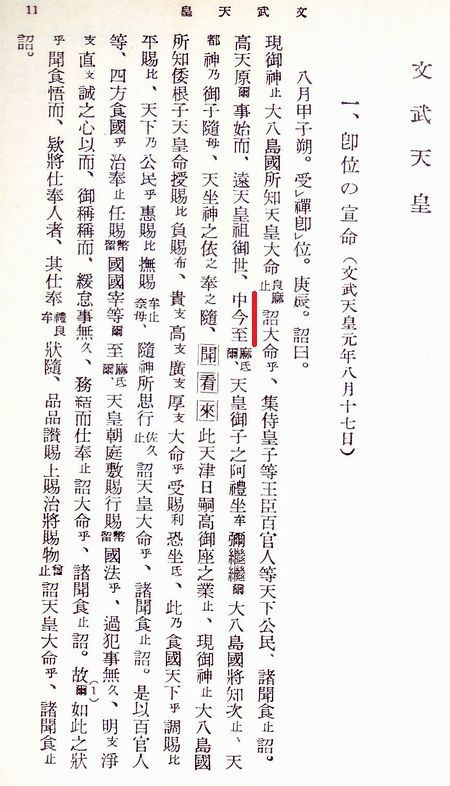 文武天皇
11
文武天皇
一、卽位の宣命(文武天皇元年八月十七日)
八月甲子朔。受レ禪卽レ位。庚辰。詔曰。
現御神止大八島國所知天皇大命良麻止詔大命乎、集侍皇子等王臣百官人等天下公民、諸聞食止詔。
高天原爾事始而、遠天皇祖御世、中今至麻氐爾、天皇御子之阿禮坐牟彌繼繼爾大八島國將知次止、天
都神乃御子隨母、天坐神之依之奉之隨、聞看來此天津日嗣高御座之業止、現御神止大八島國
所知倭根子天皇命授賜比負賜布、貴支高支廣支厚支大命乎受賜利恐坐氐、此乃食國天下乎調賜比
平賜比、天下乃公民乎惠賜比撫賜牟止奈母、隨神所思行佐久止詔天皇大命乎、諸聞食止詔。是以百官人
等、四方食國乎治奉止任賜幣留國國宰等爾至麻氐爾、天皇朝庭敷賜行賜幣留國法乎、過犯事無久、明支淨
支直支誠之心以而、御稱稱而、緩怠事無久、務結而仕奉止詔大命乎、諸聞食止詔。故爾(1)如此之狀
乎聞食悟而、欵將仕奉人者、其仕奉禮良牟狀隨、品品讃賜上賜治將賜物曾止詔天皇大命乎、諸聞食止
詔。